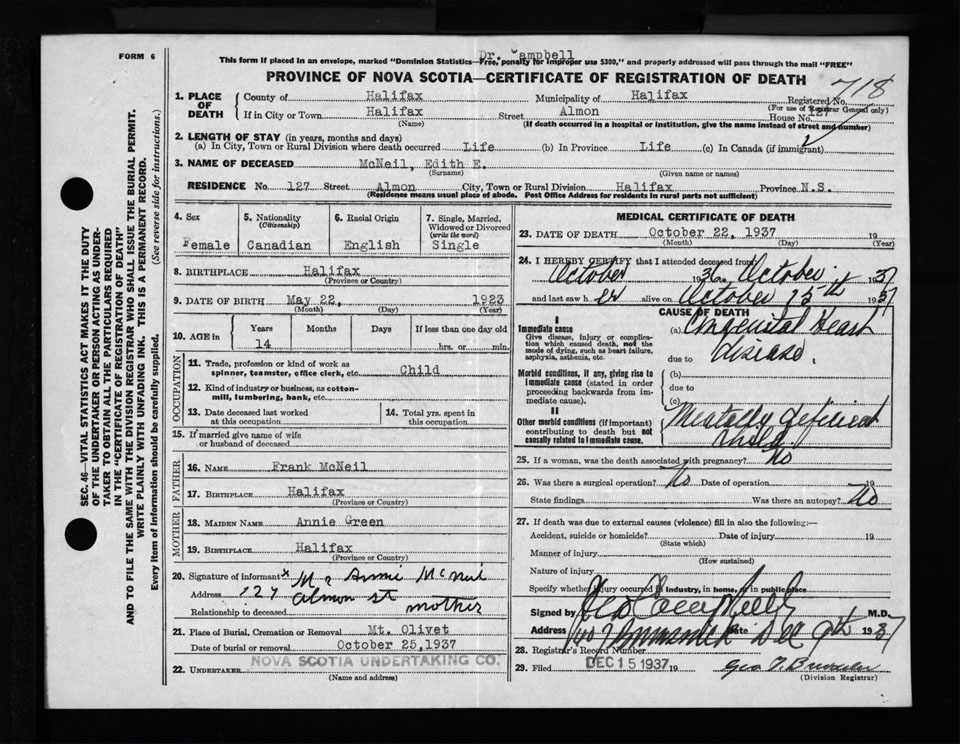 FORM 6
Dr. Campbell
This form if placed in an envelope, marked "Dominion Statistics—Free, penalty for improper use $300," and properly addressed will pass through the mail "FREE"
PROVINCE OF NOVA SCOTIA—CERTIFICATE OF REGISTRATION OF DEATH
718
1. PLACE OF DEATH
County of Halifax Municipality of Halifax Registered No.
(For use of Registrar General only)
If in City or Town Halifax Street Almon House No. 127
(Name) (If death occurred in a hospital or institution, give the name instead of street and number)
2. LENGTH OF STAY (in years, months and days)
(a) In City, Town or Rural Division where death occurred Life (b) In Province Life (c) In Canada (if immigrant)
3. NAME OF DECEASED McNeil, Edith E.
(Surname) (Given name or names)
RESIDENCE No. 127 Street Almon City, Town or Rural Division Halifax Province N.S.
(Residence means usual place of abode. Post Office Address for residents in rural parts not sufficient)
4. Sex
Female
5. Nationality
(Citizenship)
Canadian
6. Racial Origin
English
7. Single, Married, Widowed or Divorced
(write the word)
Single
8. BIRTHPLACE Halifax
(Province or Country)
9. DATE OF BIRTH May 22, 1923
(Month) (Day) (Year)
10. AGE in
Years Months Days If less than one day old
14 hrs. or min.
OCCUPATION
11. Trade, profession or kind of work as spinner, teamster, office clerk, etc. Child
12. Kind of industry or business, as cotton-mill, lumbering, bank, etc.
13. Date deceased last worked at this occupation
14. Total yrs. spent in this occupation
15. If married give name of wife or husband of deceased
FATHER
16. NAME Frank McNeil
17. BIRTHPLACE Halifax
(Province or Country)
MOTHER
18. MAIDEN NAME Annie Green
19. BIRTHPLACE Halifax
(Province or Country)
20. Signature of informant x Mrs Annie McNeil
Address 127 Almon st
Relationship to deceased mother
21. Place of Burial, Cremation or Removal Mt. Olivet
Date of burial or removal October 25,1937
22. UNDERTAKER NOVA SCOTIA UNDERTAKING CO.
(Name and address)
MEDICAL CERTIFICATE OF DEATH
23. DATE OF DEATH October 22, 1937 19
(Month) (Day) (Year)
24. I HEREBY CERTIFY that I attended deceased from
October 1936 October 1937
and last saw h er alive on October 15th 1937
CAUSE OF DEATH
I
Immediate cause
Give disease, injury or complication which caused death, not the mode of dying, such as heart failure, asphyxia, asthenia, etc.
(a) Congenital Heart
due to disease.
Morbid conditions, if any, giving rise to immediate cause (stated in order proceeding backwards from immediate cause).
(b)
due to
(c)
II
Other morbid conditions (if important) contributing to death but not causally related to immediate cause.
Mentally deficient
child
25. If a woman, was the death associated with pregnancy? No
26. Was there a surgical operation? No Date of operation 19
State findings Was there an autopsy? No
27. If death was due to external causes (violence) fill in also the following:—
Accident, suicide or homicide? Date of injury 19
(State which)
Manner of injury
(How sustained)
Nature of injury
Specify whether injury occurred in industry, in home, or in public place
Signed by Campbell M.D.
Address Date Dec 9th 1937
28. Registrar's Record Number
29. Filed DEC 15 1937 19 Geo
(Division Registrar)
SEC. 46—VITAL STATISTICS ACT MAKES IT THE DUTY
OF THE UNDERTAKER OR PERSON ACTING AS UNDER-
TAKER TO OBTAIN ALL THE PARTICULARS REQUIRED
IN THE "CERTIFICATE OF REGISTRATION OF DEATH"
AND TO FILE THE SAME WITH THE DIVISION REGISTRAR WHO SHALL ISSUE THE BURIAL PERMIT.
WRITE PLAINLY WITH UNFADING INK. THIS IS A PERMANENT RECORD.
Every item of information should be carefully supplied. (See reverse side for instructions.)